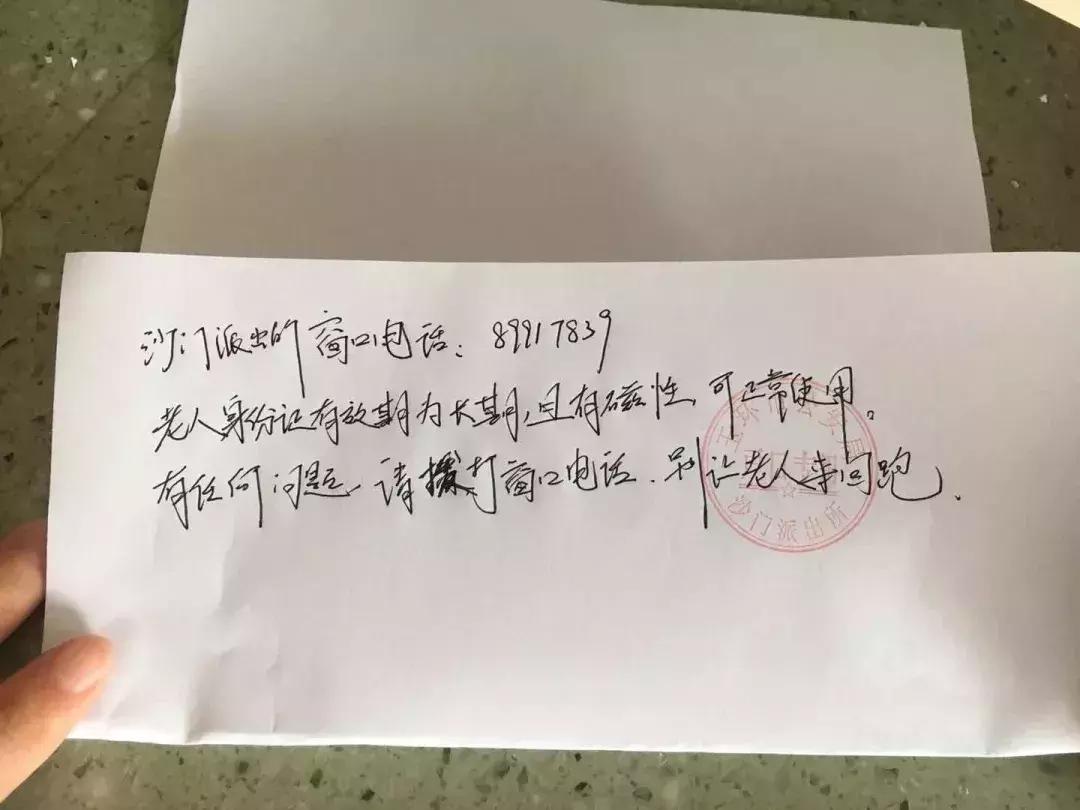 沙门派出所窗口电话：89917839
老人身份证有效期为长期，且有磁性，可正常使用。
有任何问题、请拨打窗口电话．别让老人来回跑．
沙门派出所